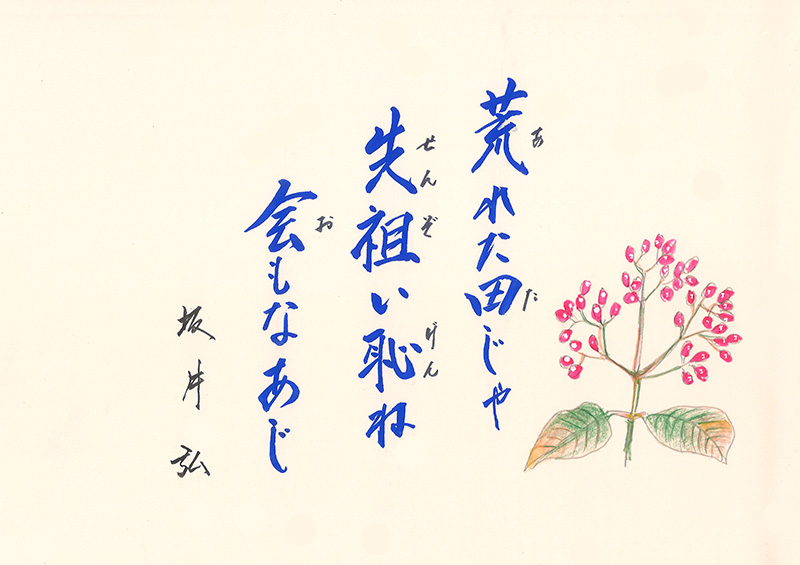 荒れた田じゃ
あ
た
先祖い恥ね
せんぞ
げん
会もなあじ
お
坂井弘